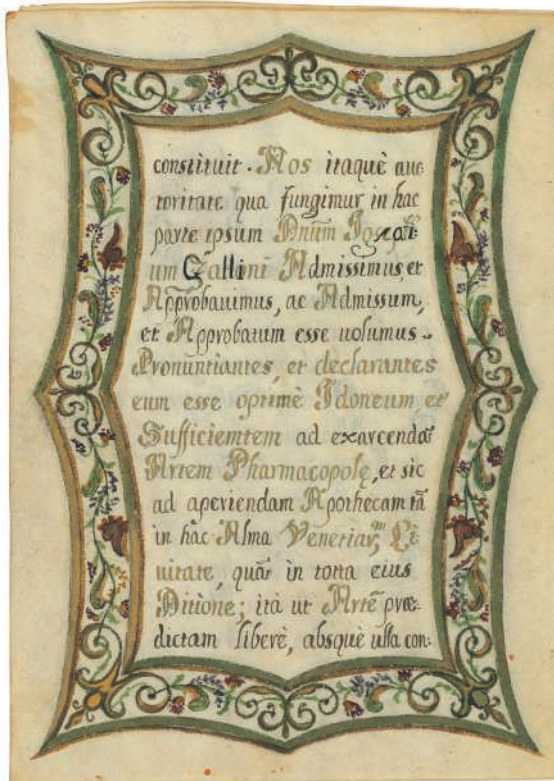 constituit. Nos itaquè auc
toritate qua fungimur in hac
parte ipsum Dnũm
um Gallini Admissimus, et
Approbauimus, ac Admissum,
et Approbatum esse uolumus.
Pronuntiantes, et declarantes
eum esse optimè Idoneum, et
Sufficiemtem ad exarcendã
Artem Pharmacopolę, et sic
ad aperiendam Apothecam tã
in hac Alma Venetiarͫ, Ci
uitate, quã in totta eius
Ditione; ità ut Artē præ-
dictam liberè, absquè ulla con: